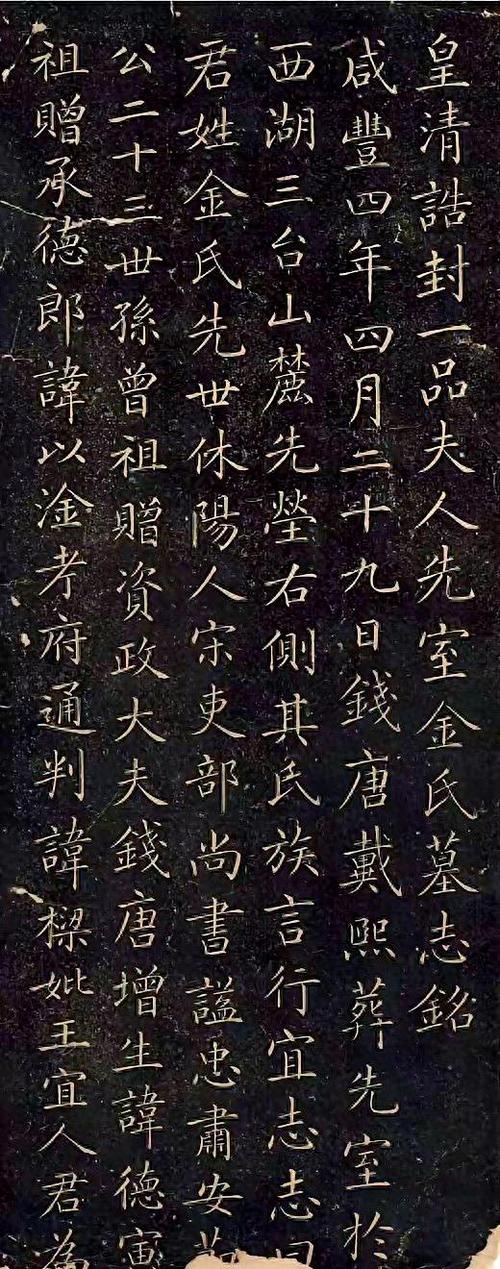 皇清誥封一品夫人先室金氏墓志銘
咸豐四年四月二十九日錢唐戴熙葬先室於
西湖三台山麓先塋右側其氏族言行宜志志曰
君姓金氏先世休陽人宋吏部尚書謚忠肅安
公二十三世孫曾祖贈資政大夫錢唐增生諱德寅
祖贈承德郎諱以淦考府通判諱樑妣王宜人君為